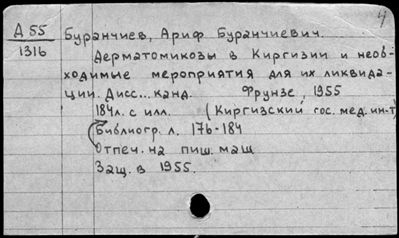 4
Д 55
1316
Буранчиев, Ариф Буранчиевич.
Дерматомикозы в Киргизии и необ-
ходимые мероприятия для их ликвида-
ции. Дисс... канд. Фрунзе, 1955
184л. с илл. (Киргизский гос. мед. ин-т)
Библиогр. л. 176-184
Отпеч. на пиш. маш
Защ. в 1955.